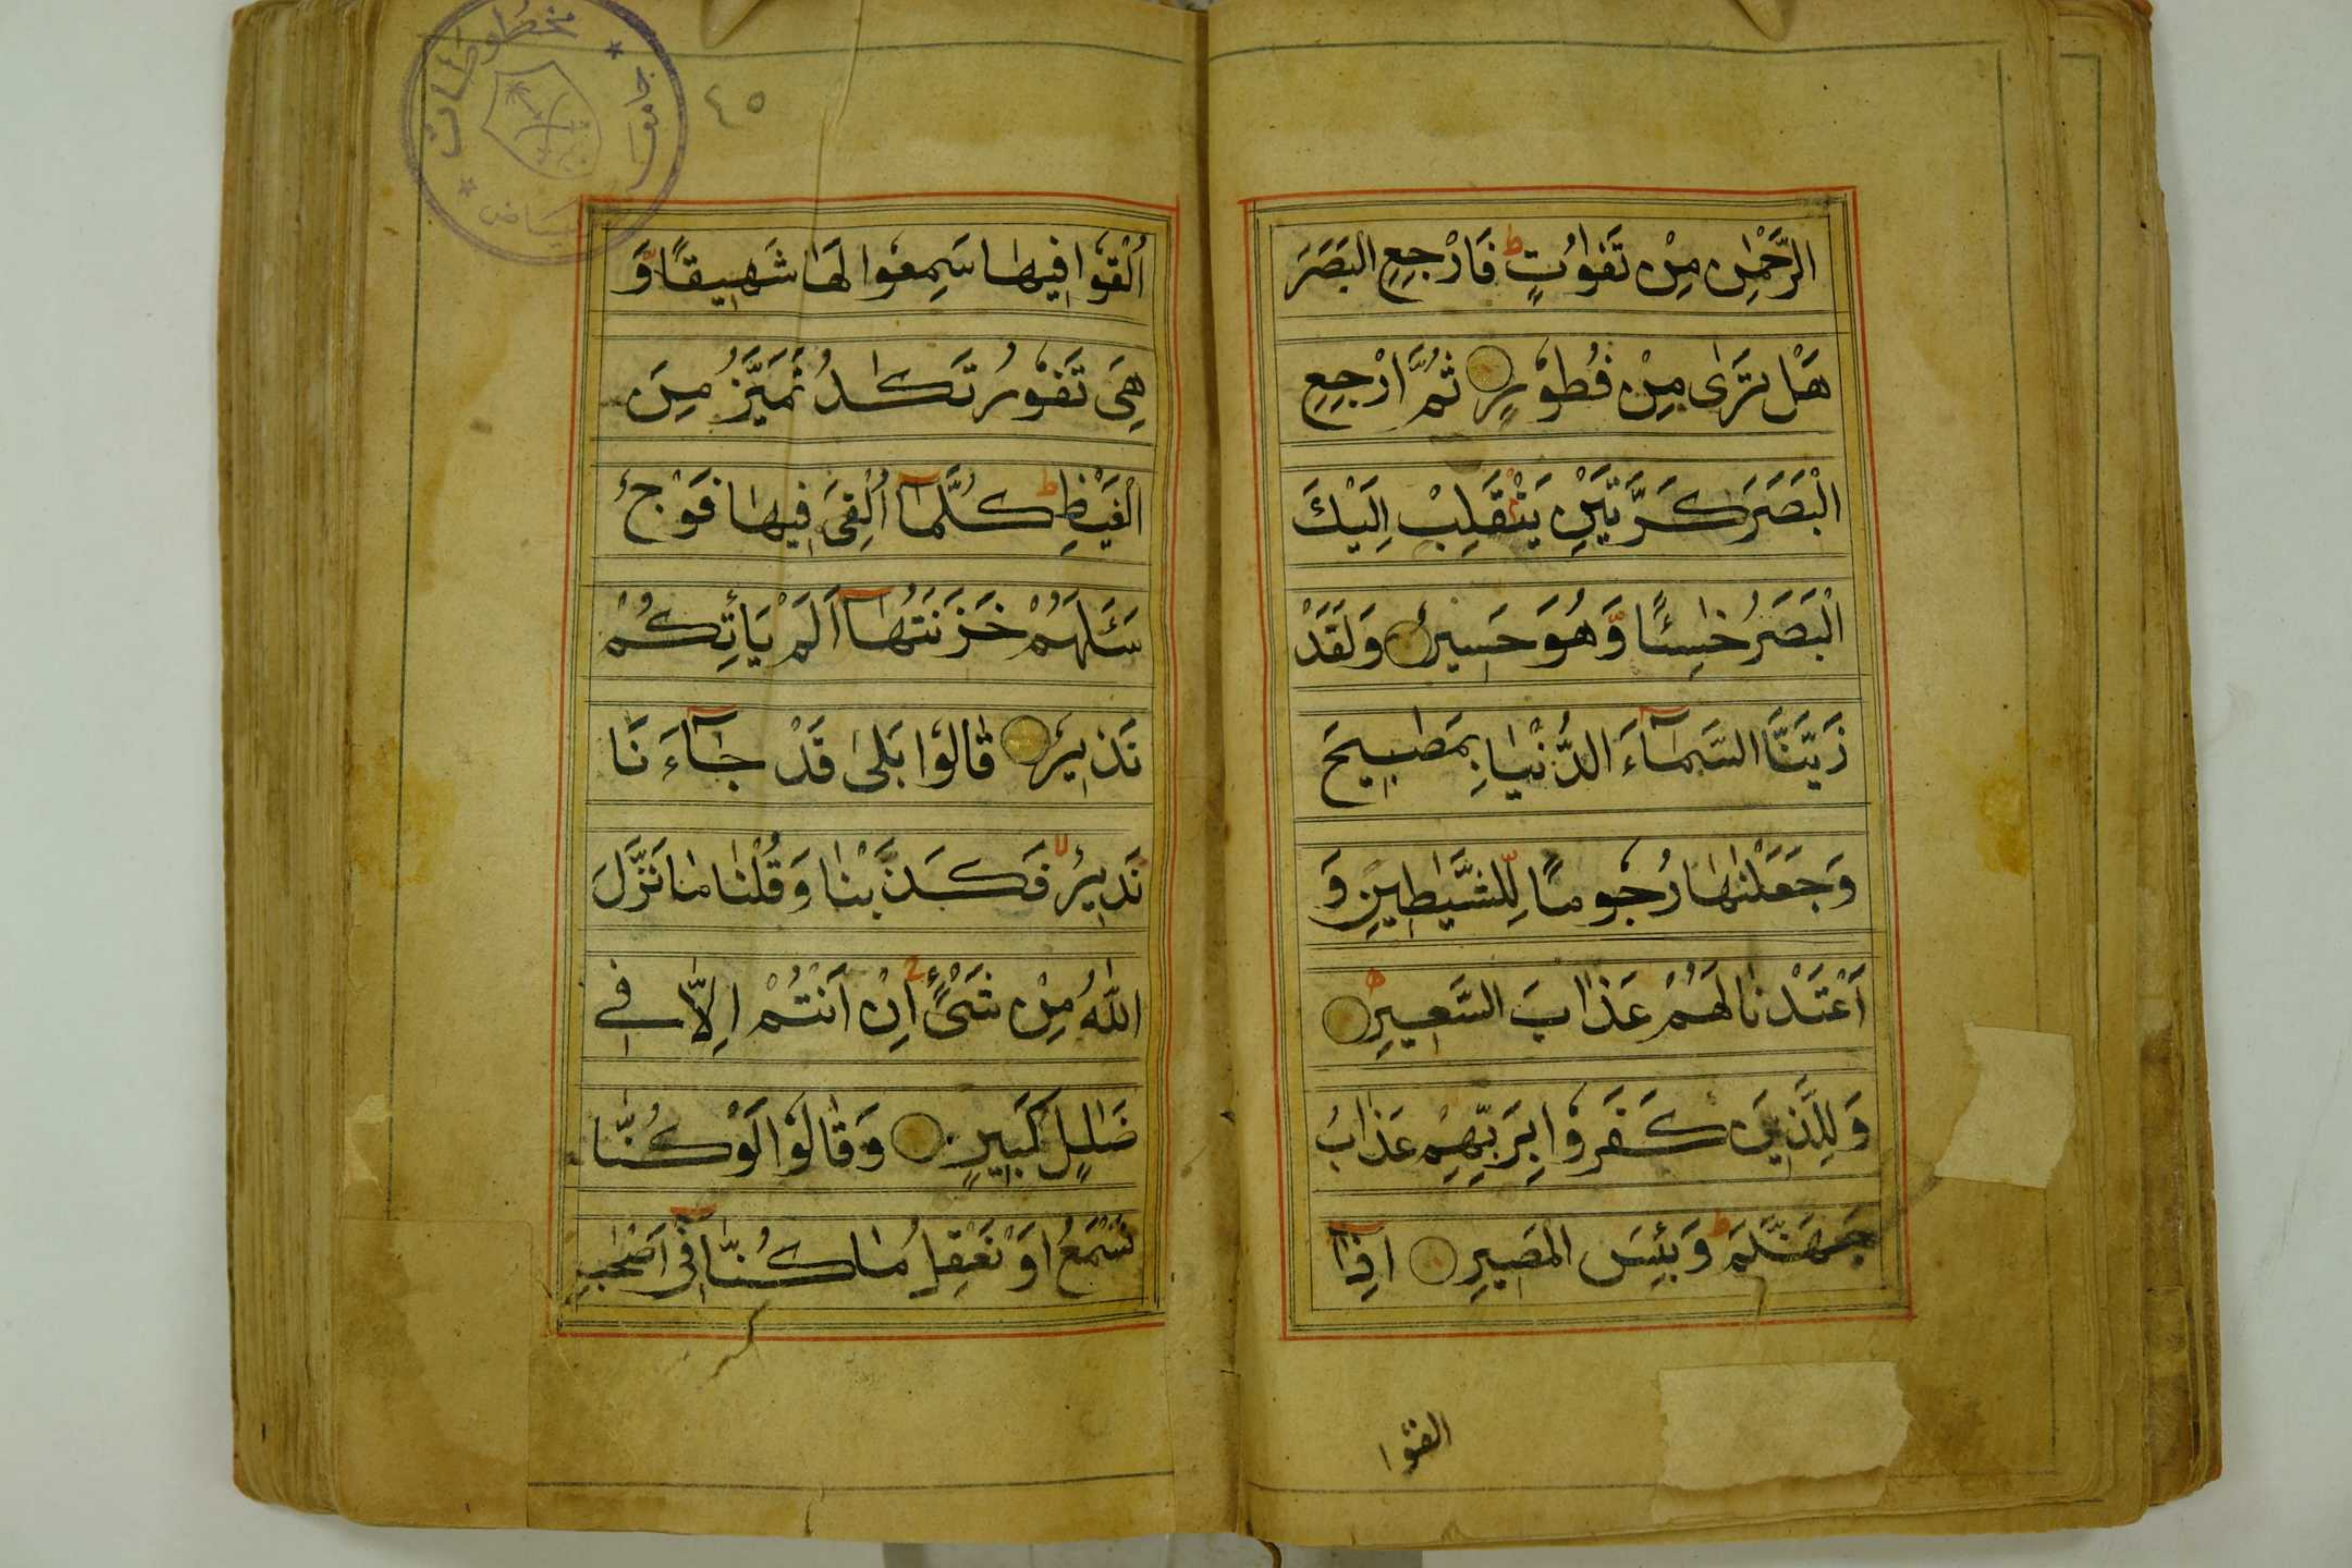 الرَّحْمٰنِ مِنْ تَفٰوُتٍ ط فَارْجِعِ الْبَصَرَ
هَلْ تَرٰى مِنْ فُطُوْرٍ ثُمَّ ارْجِعِ
الْبَصَرَ كَرَّتَيْنِ يَنْقَلِبْ اِلَيْكَ
الْبَصَرُ خٰسِئًا وَّهُوَ حَسِيْرٌ وَلَقَدْ
زَيَّنَّا السَّمَآءَ الدُّنْيٰا بِمَصٰبِيحَ
وَجَعَلْنٰهٰا رُجُومًا لِّلشَّيٰطِينِ وَ
اَعْتَدْنٰا لَهُمْ عَذٰابَ السَّعِيرِ ط
وَلِلَّذِينَ كَفَرُوْا بِرَبِّهِمْ عَذٰابُ
جَهَنَّمَ ط وَبِئْسَ الْمَصِيرُ اِذٰآ
القوا
٤٥
مخطوطات
جامعة
الرياض
اُلْقُوْا فِيهٰا سَمِعُوا لَهٰا شَهِيقًا وَّ
هِىَ تَفُوْرُ تَكٰادُ تَمَيَّزُ مِنَ
الْغَيْظِ ط كُلَّمٰآ اُلْقِىَ فِيهٰا فَوْجٌ
سَئَلَهُمْ خَزَنَتُهٰآ اَلَمْ يَأْتِكُمْ
نَذِيرٌ قٰالُوْا بَلٰى قَدْ جٰآءَنَا
نَذِيرٌ لا فَكَذَّبْنٰا وَقُلْنٰا مٰا نَزَّلَ
اللّٰهُ مِنْ شَىْءٍ اِنْ اَنْتُمْ اِلَّا فِى
ضَلٰلٍ كَبِيرٍ وَقٰالُوْا لَوْ كُنَّا
نَسْمَعُ اَوْ نَعْقِلُ مٰا كُنّٰا فِىٓ اَصْحٰبِ